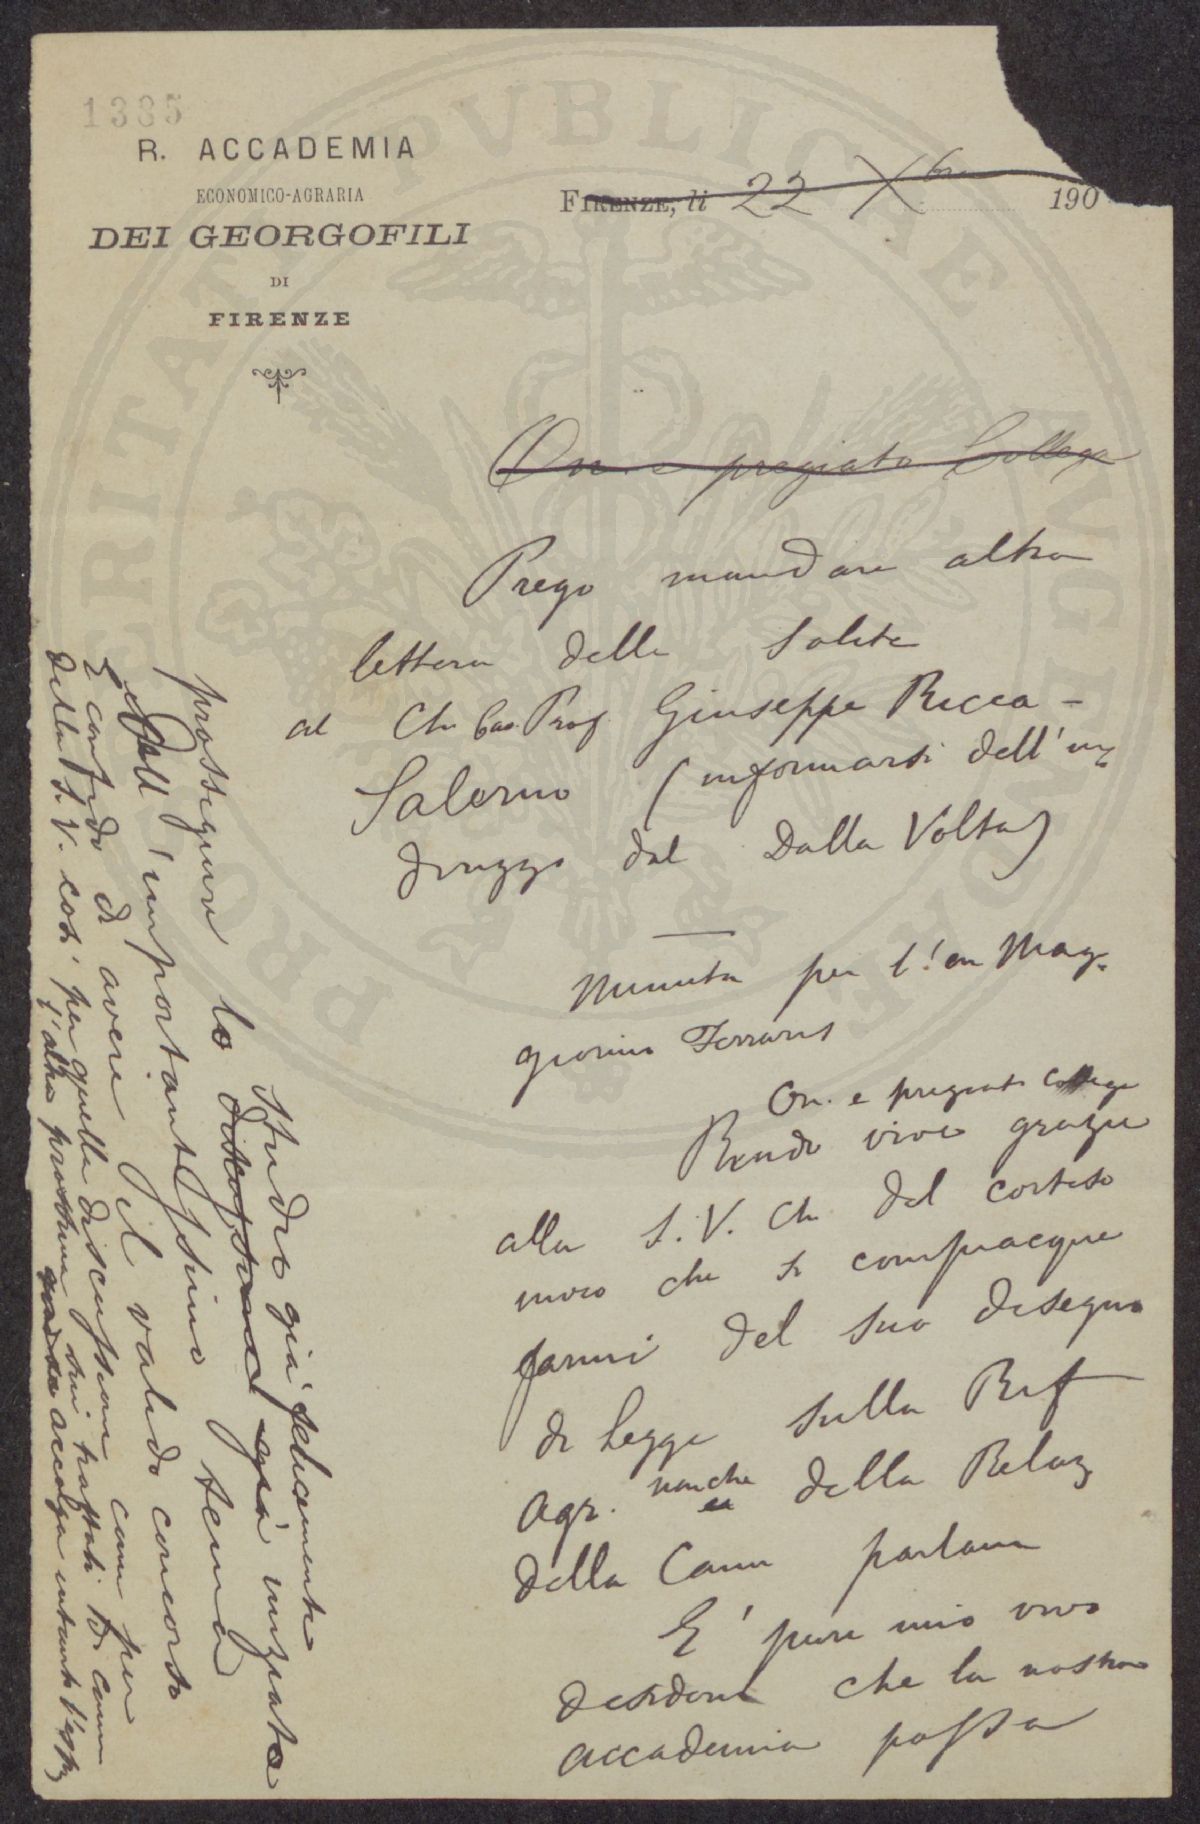 1385
R. ACCADEMIA
ECONOMICO-AGRARIA
DEI GEORGOFILI
DI
FIRENZE
FIRENZE, li 22 Xbre 190
On. e pregiato Collega
Prego mandare altra
lettera delle solite
al Ch. Cav. Prof. Giuseppe Ricca-
Salerno (informarsi dell'in-
dirizzo dal Dalla Volta)
Minuta per l'On Mag-
giorino Ferraris
On. e pregiato Collega
Rendo vive grazie
alla S. V. Ch. del cortese
invio che si compiacque
farmi del suo disegno
di legge sulla Rif
agr. nonche della Relaz
della Comm parlam
E' pure mio vivo
desiderio che la nostra
accademia possa
proseguire lo studio già felicemente
discussione già iniziato
dell'importantissimo tema
E confido di avere il valido concorso
della S. V. così per quelle discussioni come per
l'altre prossime
accolga intanto